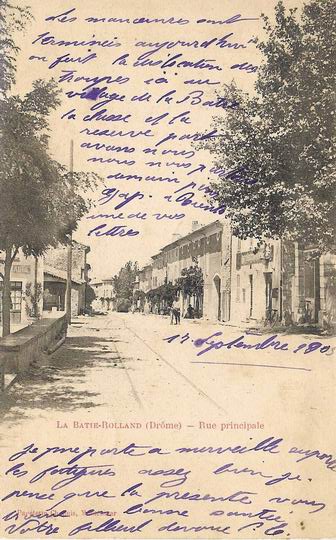 Les manœuvres sont
terminées aujourd'hui
on fait la dislocation des
troupes ici au
village de la Batie
la classe et la
réserve part
avons nous
nous nous
demain pour
Gap.
une de vos
lettres
14 Septembre 190
LA BATIE-ROLLAND (Drôme) — Rue principale
je me porte a merveille
les fatigues assez bien je
pense que la presente vous
bonne santé
Votre filleul dévoué P. C.